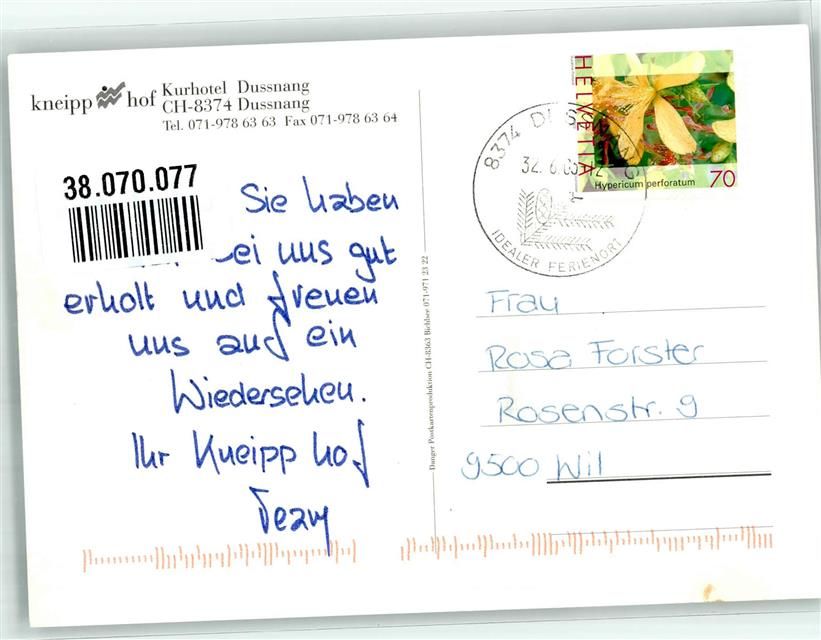 kneipp hof
Kurhotel Dussnang
CH-8374 Dussnang
Tel. 071-978 63 63 Fax 071-978 63 64
38.070.077
Sie haben
bei uns gut
erholt und freuen
uns auf ein
Wiedersehen.
Ihr Kneipp hof
Team
Danger Postkartenproduktion CH-8363 Bichlsee 071-971 23 22
HELVETIA
Hypericum perforatum 70
8374
IDEALER FERIENORT
Frau
Rosa Forster
Rosenstr. 9
9500 Wil